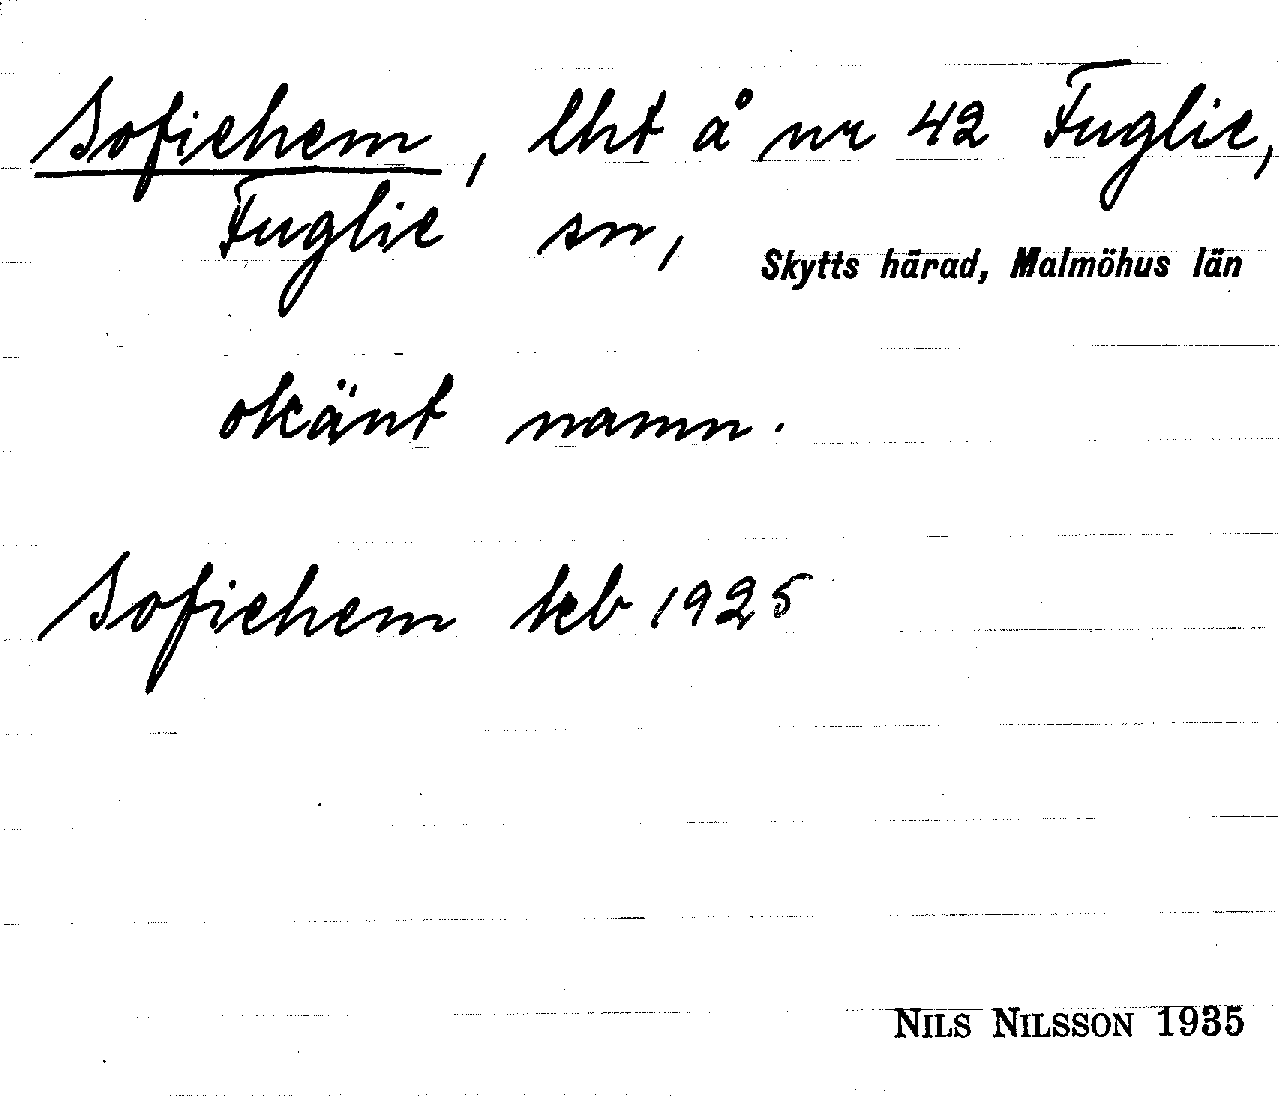 Sofiehem, lht å nr 42 Fuglie,
Fuglie sn, Skytts härad, Malmöhus län
okänt namn.
Sofiehem keb 1925
NILS NILSSON 1935